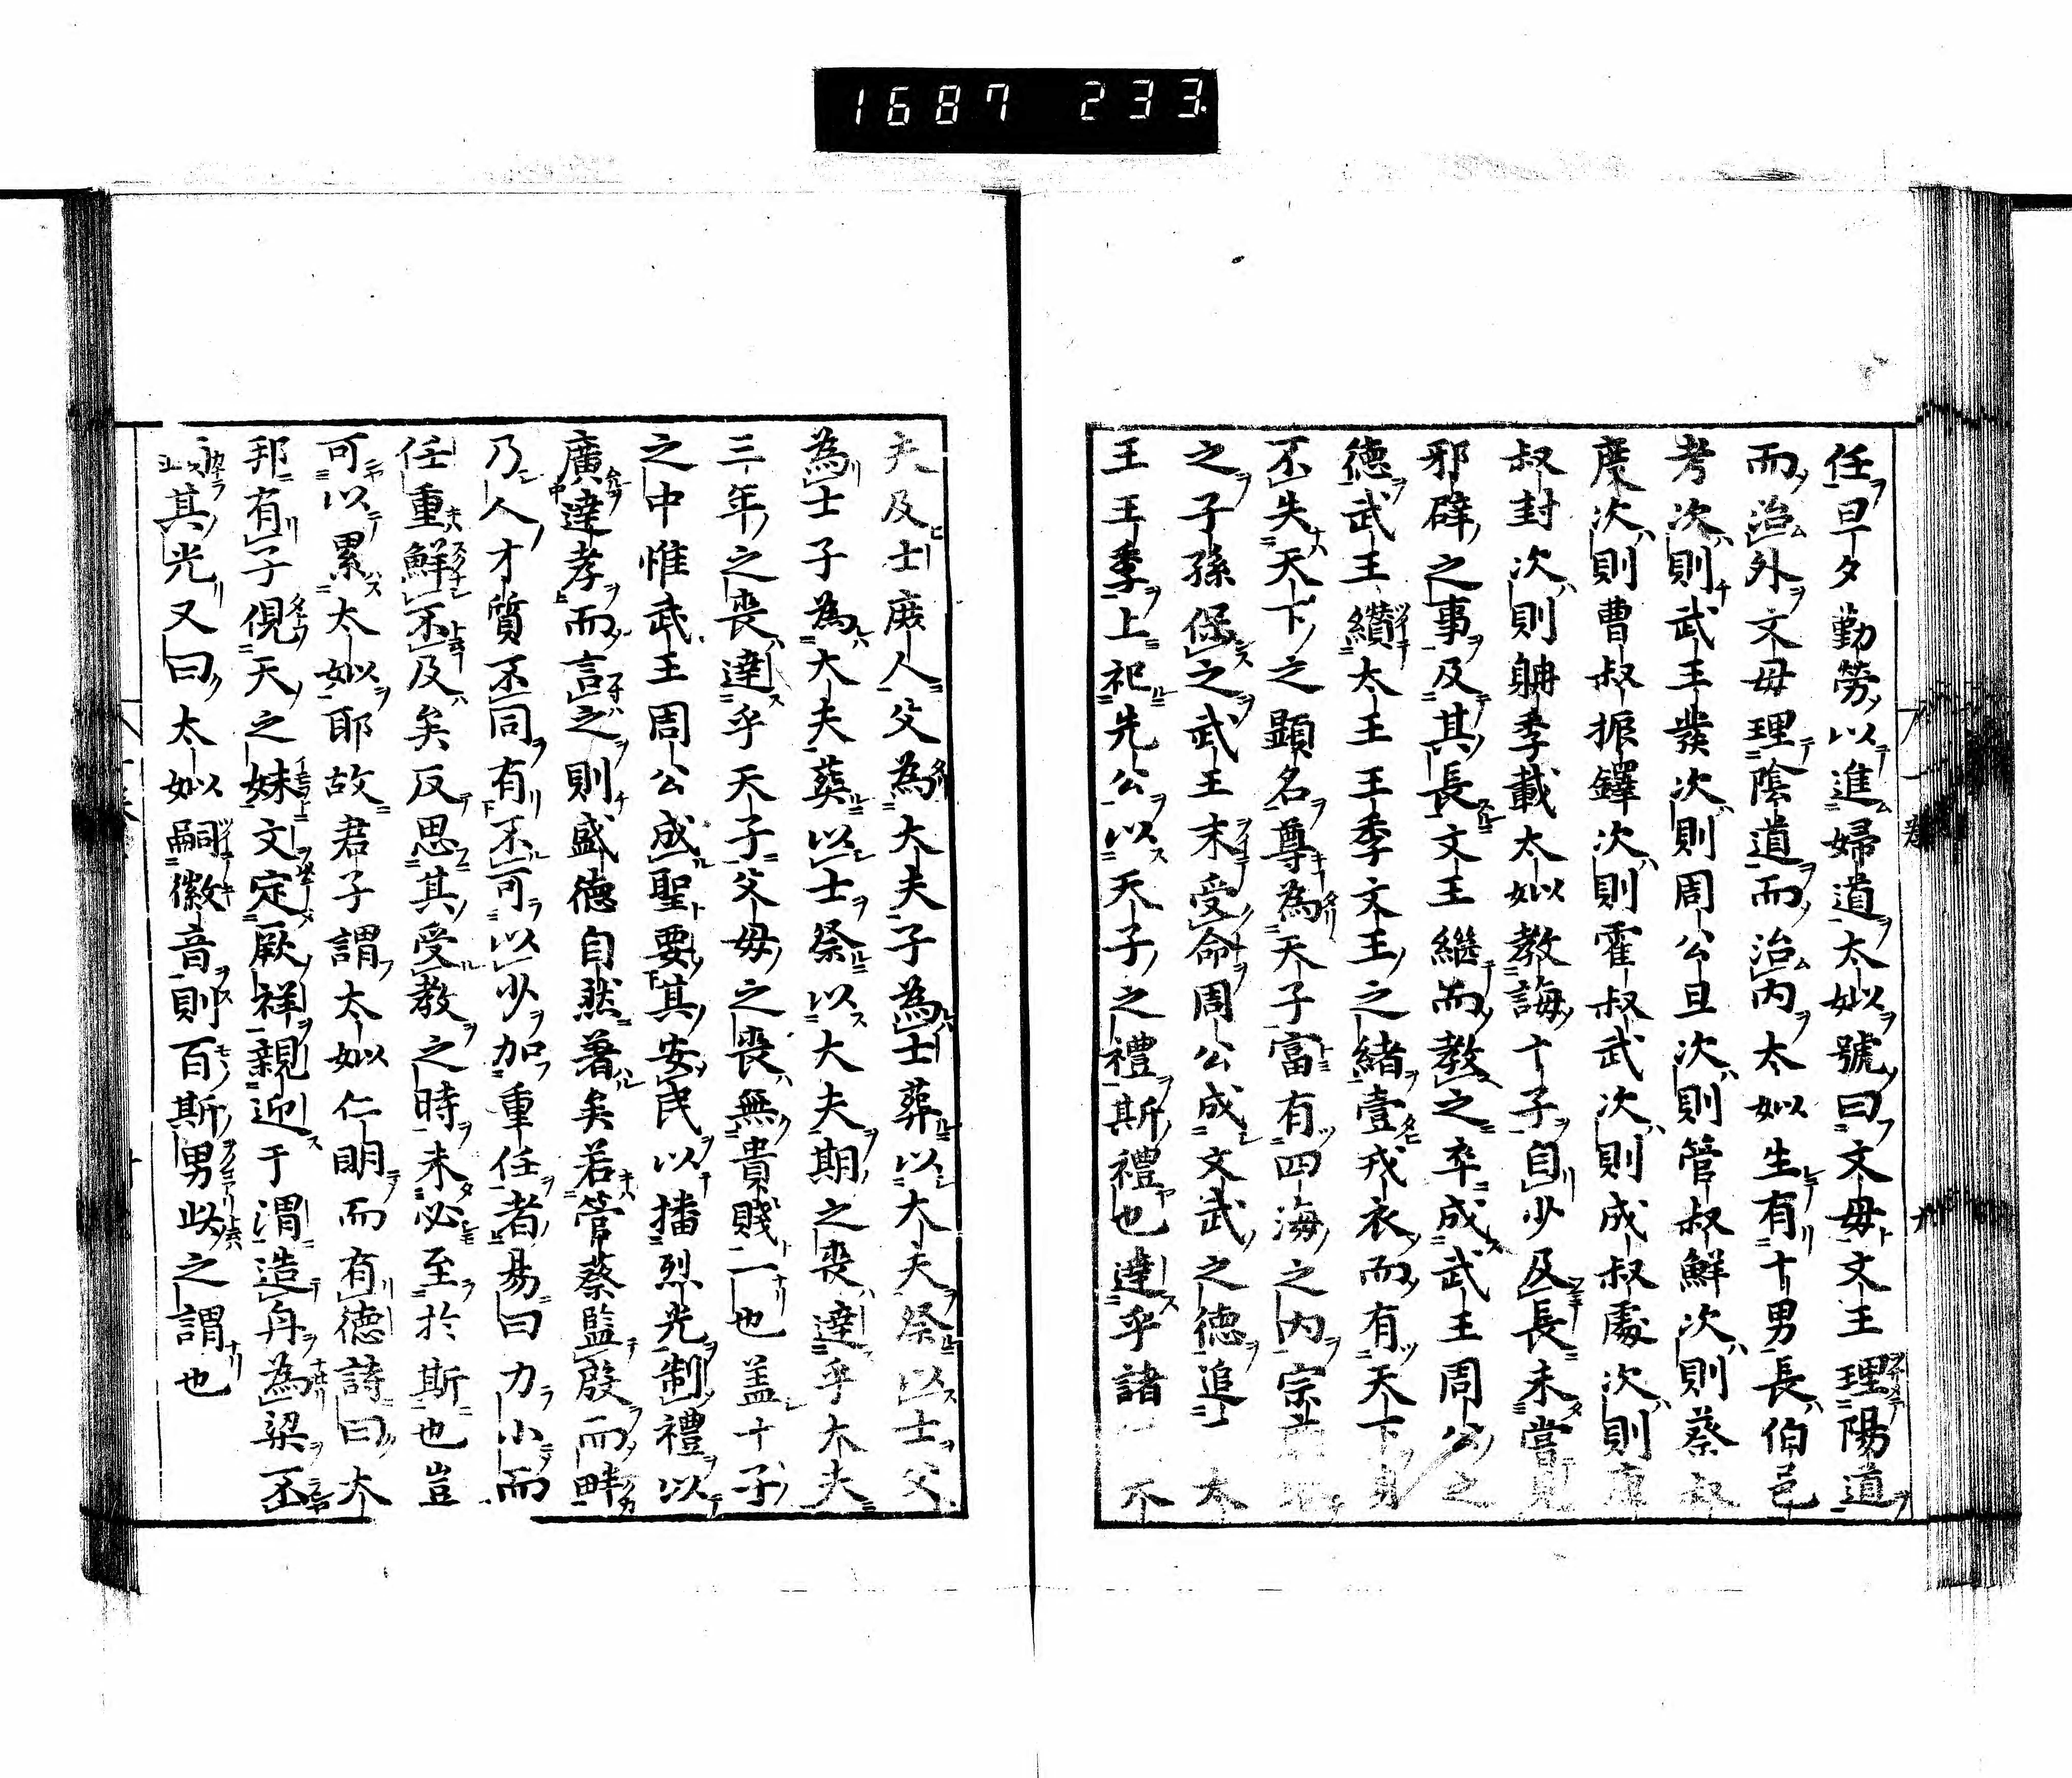 1687 233
任旦夕勤勞以進婦道太姒號曰文母文王理陽道
而治外文母理陰道而治内太姒生有十男長伯邑
考次則武王發次則周公旦次則管叔鮮次則蔡叔
度次則曹叔振鐸次則霍叔武次則成叔處次則康
叔封次則聃季載太姒教誨十子自少及長未嘗見
邪辟之事及其長文王繼而教之卒成武王周公之
德武王纘太王王季文王之緒壹戎衣而有天下身
不失天下之顯名尊為天子富有四海之内宗
之子孫保之武王末受命周公成文武之德追 太
王王季上祀先公以天子之禮斯禮也達乎諸 不
夫及士庶人父為大夫子為士葬以大夫祭以士父
為士子為大夫葬以士祭以大夫期之喪達乎大夫
三年之喪達乎天子父母之喪無貴賤一也盖十子
之中惟武王周公成聖要其安民以播烈光制禮以
廣達孝而言之則盛德自然著矣若管蔡監殷而畔
乃人才質不同有不可以少加重任者易曰力小而
任重鮮不及矣反思其受教之時未必至於斯也豈
可以累太姒耶故君子謂太姒仁明而有德詩曰大
邦有子俔天之妹文定厥祥親迎于渭造舟為梁不
其光又曰太姒嗣徽音則百斯男此之謂也